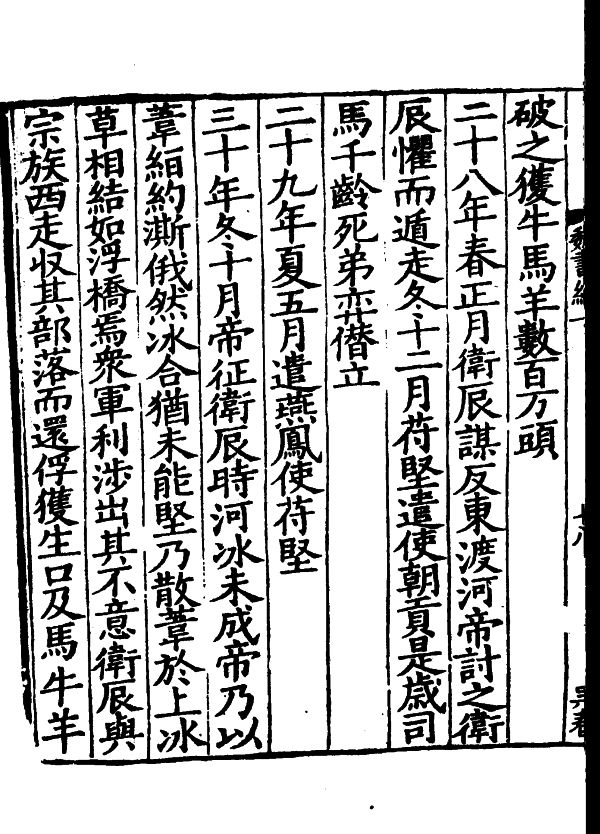 破之獲牛馬羊數百万頭
二十八年春正月衛辰謀反東渡河帝討之衛
辰懼而遁走冬十二月苻堅遣使朝貢是歲司
馬千齡死弟弈僣立
二十九年夏五月遣燕鳳使苻堅
三十年冬十月帝征衛辰時河冰未成帝乃以
葦絙約澌俄然冰合猶未能堅乃散葦於上冰
草相結如浮橋焉衆軍利涉出其不意衛辰與
宗族西走収其部落而還俘獲生口及馬牛羊